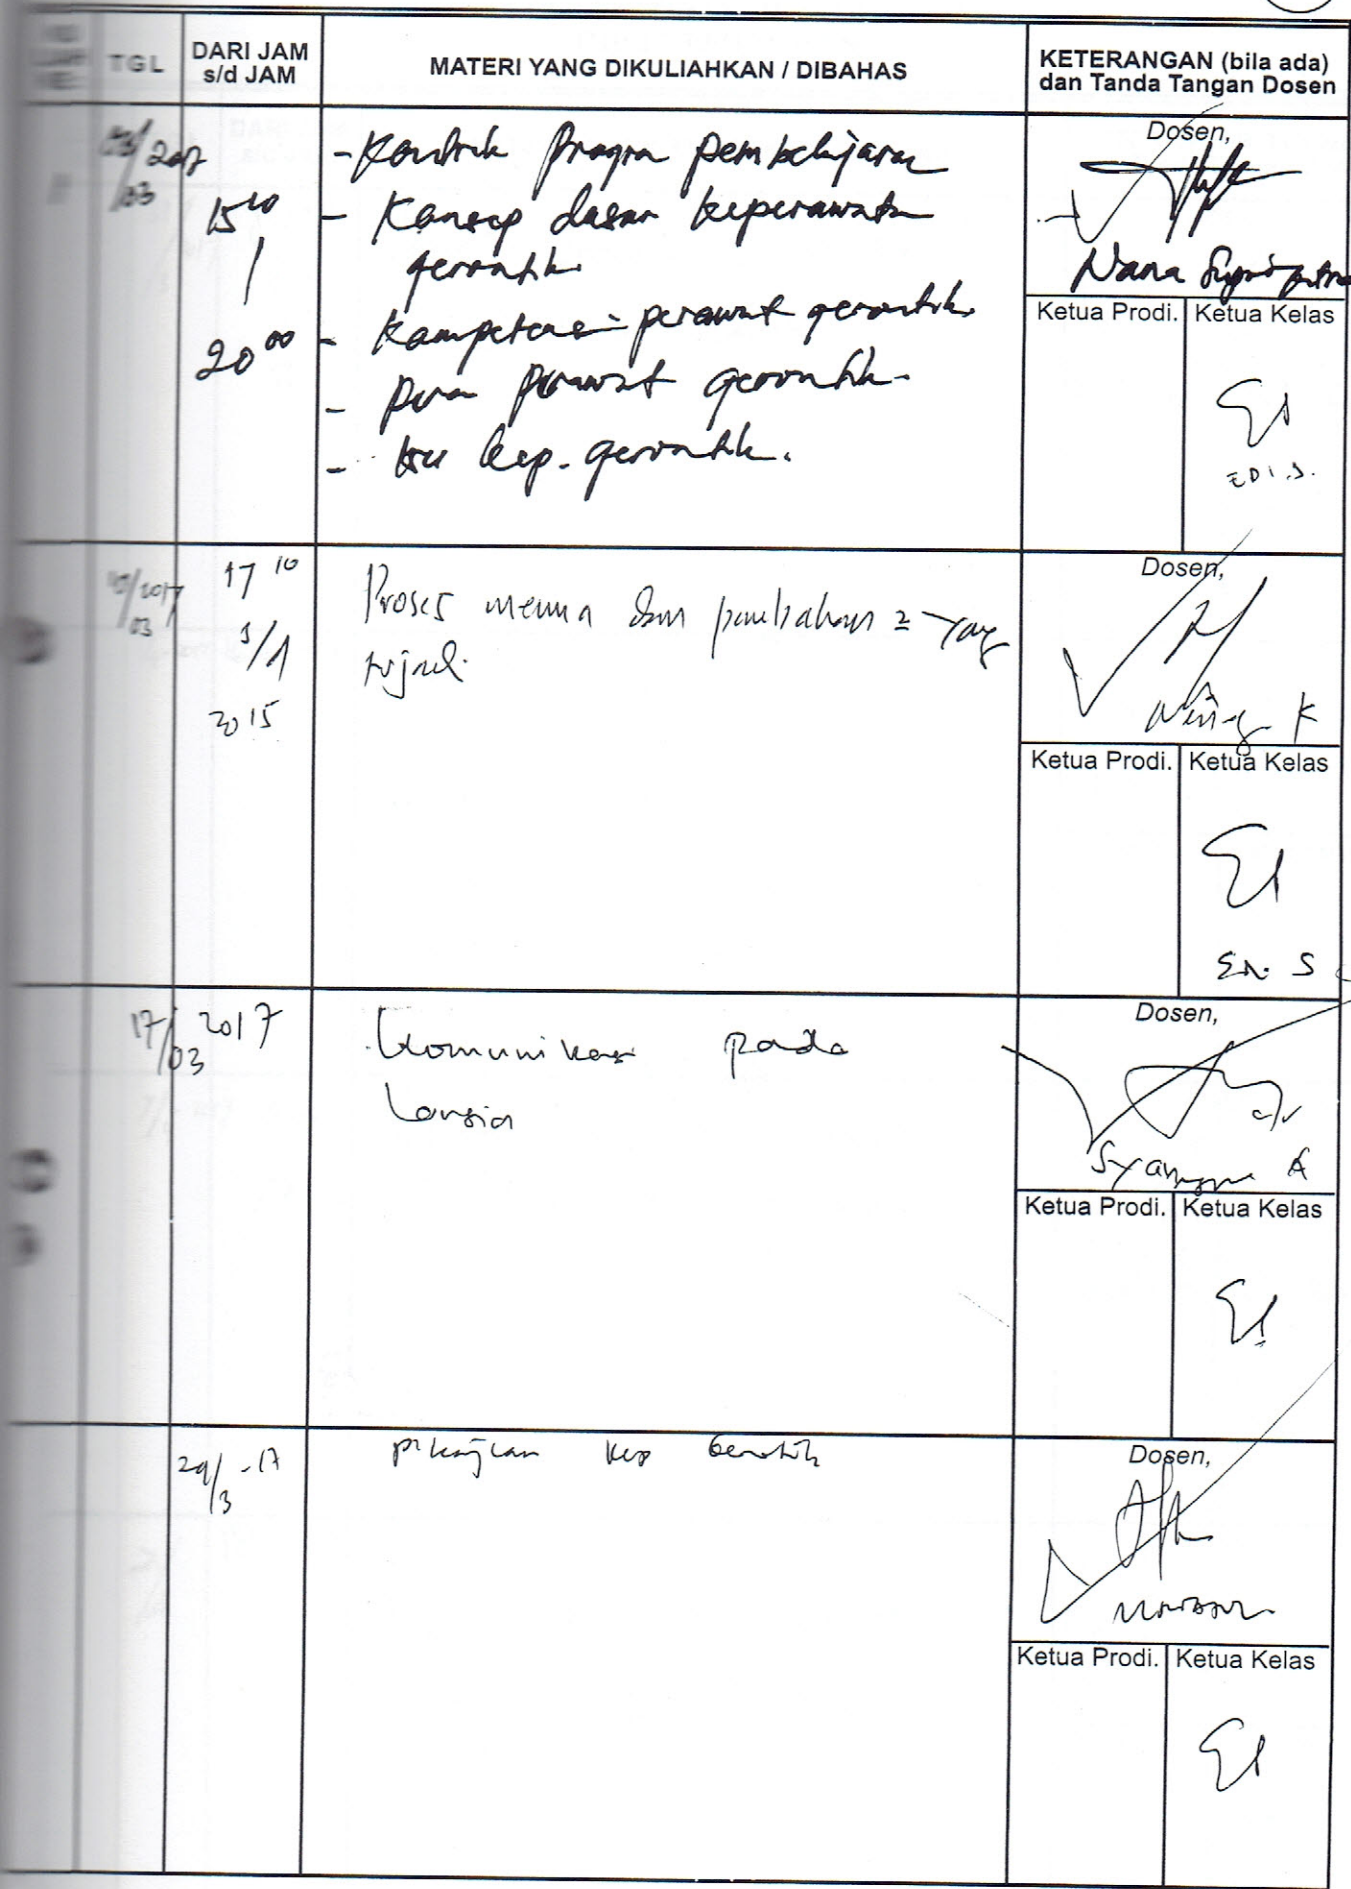 TGL
DARI JAM
s/d JAM
MATERI YANG DIKULIAHKAN / DIBAHAS
KETERANGAN (bila ada)
dan Tanda Tangan Dosen
03/03 2017
15 10
20 00
- Kontrak Program pembelajaran
- Konsep dasar keperawatan
gerontik.
- Kompetensi perawat gerontik.
- peran perawat gerontik.
- kep. gerontik.
Dosen,
Nana
Ketua Prodi.
Ketua Kelas
EDI.S.
10/03 2017
17 10
s/d
20 15
Proses menua dan perubahan2 yang
terjadi.
Dosen,
K
Ketua Prodi.
Ketua Kelas
S
17/03 2017
Komunikasi pada
Lansia
Dosen,
A
Ketua Prodi.
Ketua Kelas
24/3 -17
pengkajian kep Gerontik
Dosen,
Ketua Prodi.
Ketua Kelas